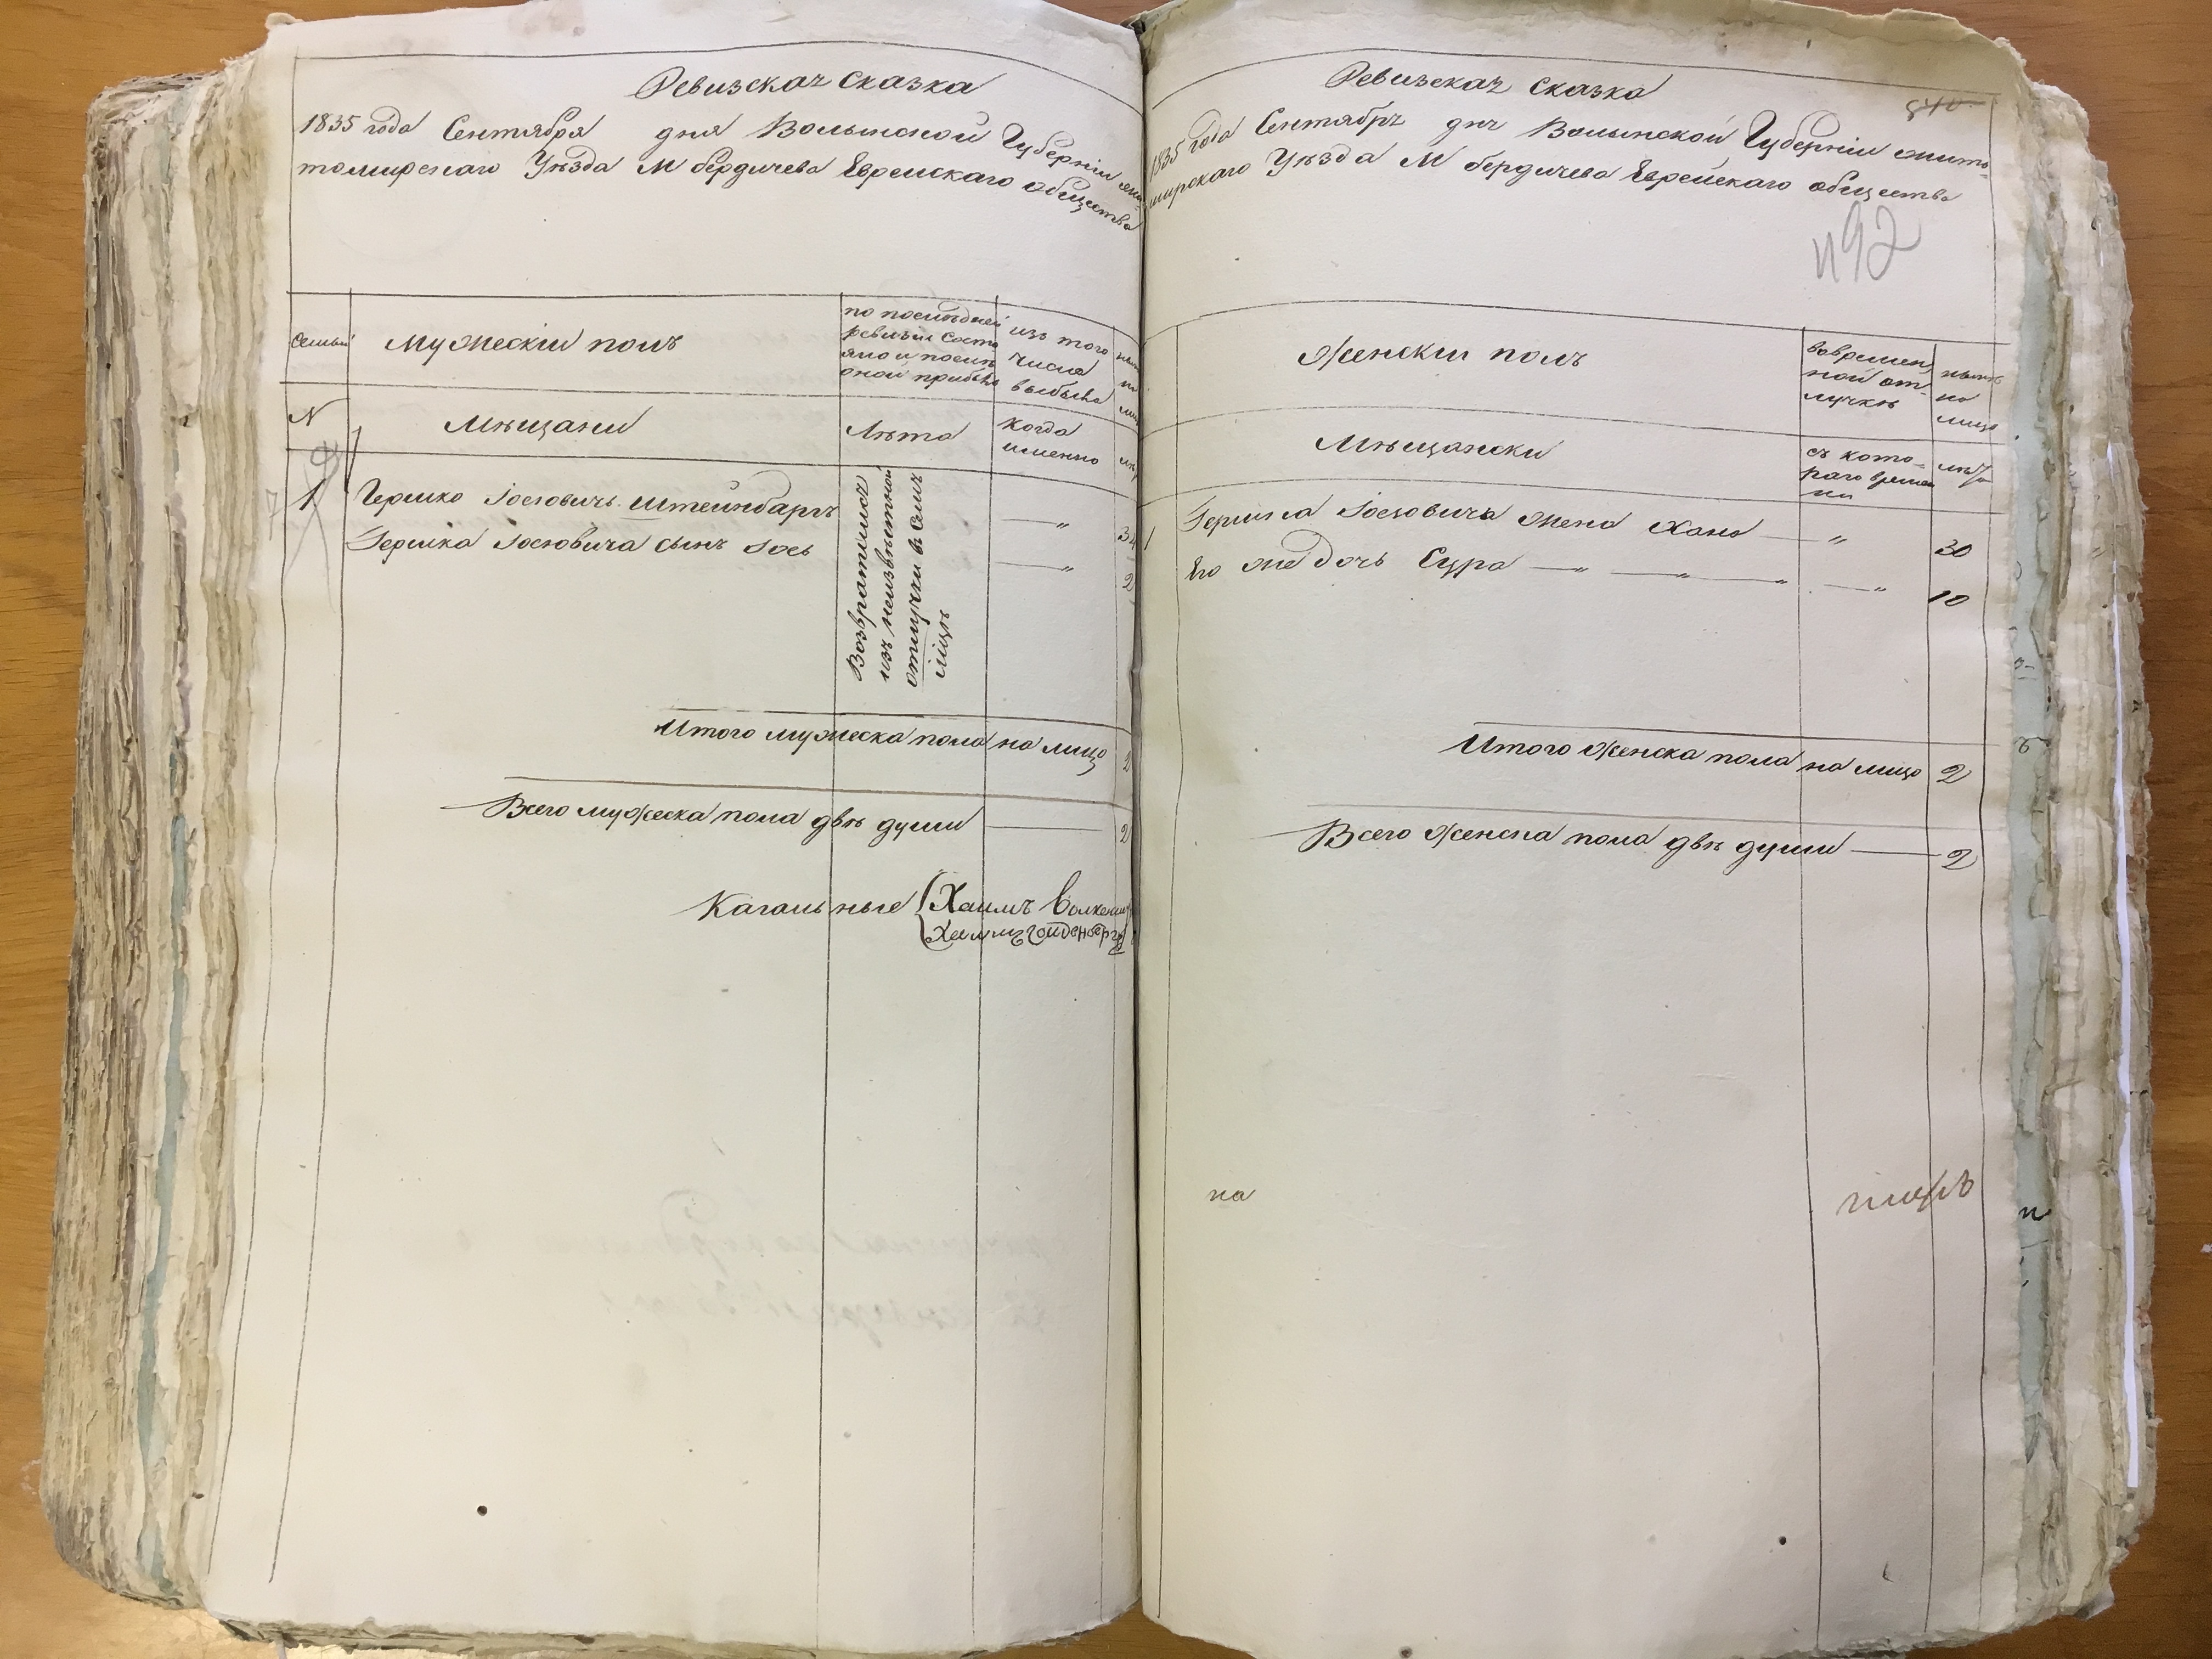 Ревизская сказка
1835 года Сентября дня Волынской Губерніи жи-
томирскаго Уѣзда М бердичева Еврейскаго общества
семьи
Мужескій полъ
по послѣдней
ревизіи состо
яло и послѣ
оной прибыло
изъ того
числа
выбыло
N
Мѣщани
Лѣта
Когда
именно
1 Гершко Іосіовичъ Штейнбаргъ — " 34
Гершка Іосіовича сынъ Іось — " 2
Возвратился
изъ неизвѣстной
отлучки въ семъ
Итого мужеска пола на лицо 2
Всего мужеска пола двѣ души — 2
Кагальные Хаимъ
Хаимъ Голденбергъ
Ревизская сказка
840
1835 года Сентября дня Волынской Губерніи жито-
мирскаго Уѣзда М бердичева Еврейскаго общества
492
Женскій полъ
вовремен
ной от-
лучкѣ
нынѣ
на
лицо
Мѣщански
съ кото-
раго време
ни
лѣта
1 Гершка Іосіовича жена Хана — " 30
Его же дочь Сура — " — " — " — " 10
Итого женска пола на лицо 2
Всего женска пола двѣ души — 2
на